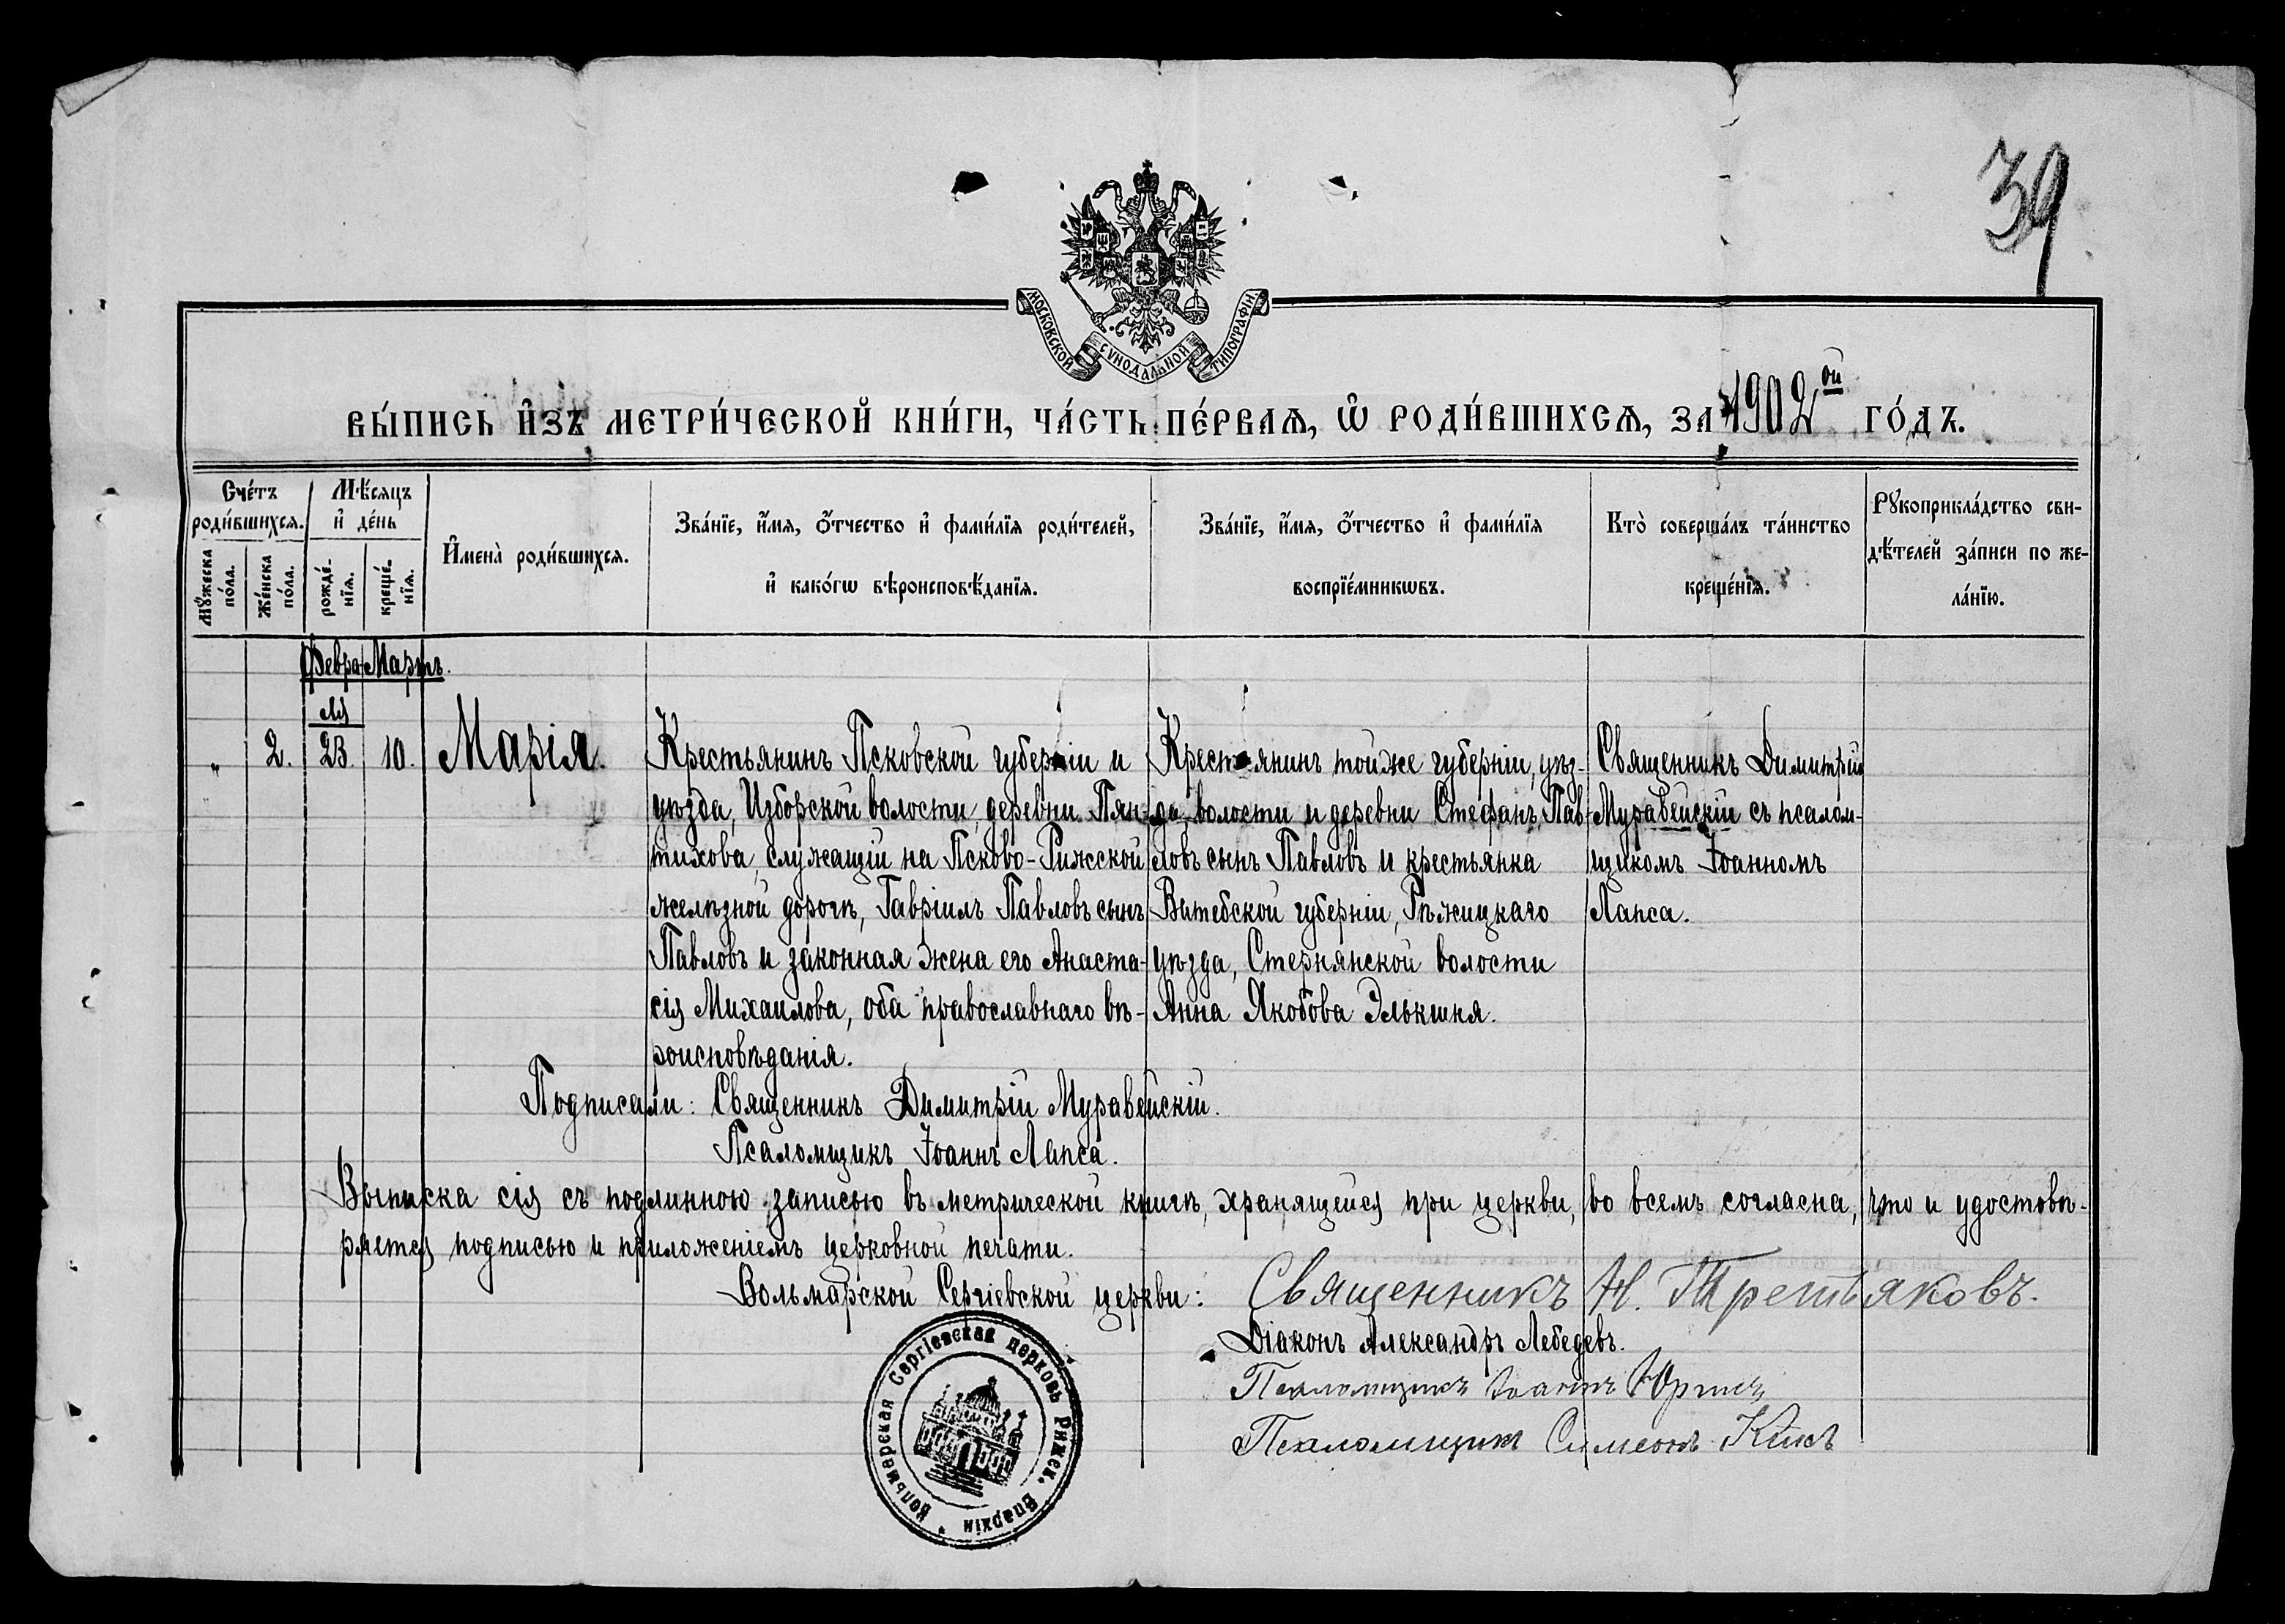 39
МОСКОВСКОЙ СѴНОДАЛЬНОЙ ТИПОГРАФІИ
ВЫ́ПИСЬ И҆ЗЪ МЕТРИ́ЧЕСКОЙ КНИ́ГИ, ЧА́СТЬ ПЕ́РВАѦ, Ѽ РОДИ́ВШИХСѦ, ЗА 1902ой ГО́ДЪ.
Сче́тъ роди́вшихсѧ.
Мѣ́сѧцъ и҆ де́нь
Мꙋ́жеска по́ла.
Же́нска по́ла.
рожде́-нїѧ.
креще́-нїѧ.
И҆мена̀ роди́вшихсѧ.
Зва́нїе, и҆́мѧ, ѻ҆́тчество и҆ фами́лїѧ роди́телей,
и҆ како́гѡ вѣроисповѣ́данїѧ.
Зва́нїе, и҆́мѧ, ѻ҆́тчество и҆ фами́лїѧ
воспрїе́мникѡвъ.
Кто̀ соверша́лъ та́инство
креще́нїѧ.
Рꙋкоприкла́дство сви-
дѣ́телей за́писи по же-
ла́нїю.
Февра
ля
Мартъ.
„ 2. 23. 10. Марія.
Крестьянинъ Псковской губерніи и
уѣзда, Изборской волости, деревни Пян-
тихова, служащій на Псково-Рижской
желѣзной дорогѣ, Гавріилъ Павловъ сынъ
Павловъ и законная жена его Анаста-
сія Михаилова, оба православнаго вѣ-
роисповѣданія.
Крестьянинъ тойже губерніи, уѣз-
да, волости и деревни Стефанъ Пав-
ловъ сынъ Павловъ и крестьянка
Витебской губерніи, Рѣжицкаго
уѣзда, Стернянской волости
Анна Якобова Элькшня.
Священникъ Димитрій
Муравейскій съ псалом-
щикомъ Іоанномъ
Лапса.
Подписали: Священникъ Димитрій Муравейскій.
Псаломщикъ Іоаннъ Лапса.
Выписка сія съ подлинною записью въ метрической книгѣ, хранящейся при церкви, во всемъ согласна, что и удостовѣ-
ряется подписью и приложеніемъ церковной печати.
Вольмарской Сергіевской церкви: Священникъ Н. Третьяковъ.
Діаконъ Александръ Лебедевъ.
Псаломщикъ Іоаннъ
Псаломщикъ Симеонъ
Вольмарская Сергіевская церковь Рижск. Епархіи